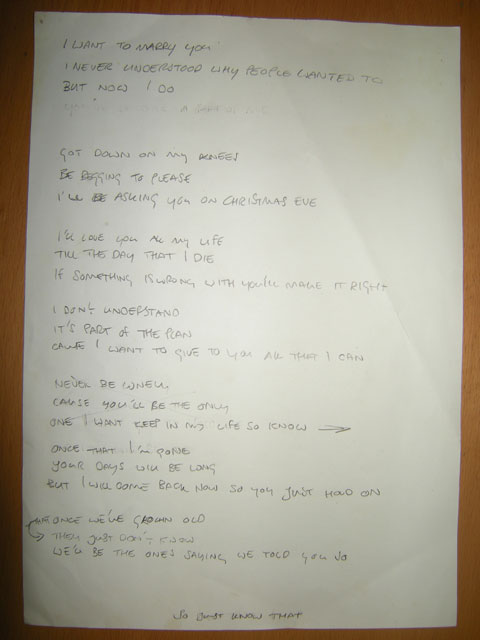 I WANT TO MARRY YOU
I NEVER UNDERSTOOD WHY PEOPLE WANTED TO
BUT NOW I DO
A PART OF ME
GOT DOWN ON MY KNEES
BE BEGGING TO PLEASE
I'LL BE ASKING YOU ON CHRISTMAS EVE
I'LL LOVE YOU ALL MY LIFE
TILL THE DAY THAT I DIE
IF SOMETHING IS WRONG WITH YOU'LL MAKE IT RIGHT
I DON'T UNDERSTAND
IT'S PART OF THE PLAN
CAUSE I WANT TO GIVE TO YOU ALL THAT I CAN
NEVER BE LONELY
CAUSE YOU'LL BE THE ONLY
ONE I WANT KEEP IN MY LIFE SO KNOW →
ONCE THAT I'M GONE
YOUR DAYS WILL BE LONG
BUT I WILL COME BACK NOW SO YOU JUST HOLD ON
ONCE WE'VE GROWN OLD
THEY JUST DON'T KNOW
WE'LL BE THE ONES SAYING WE TOLD YOU SO
SO JUST KNOW THAT